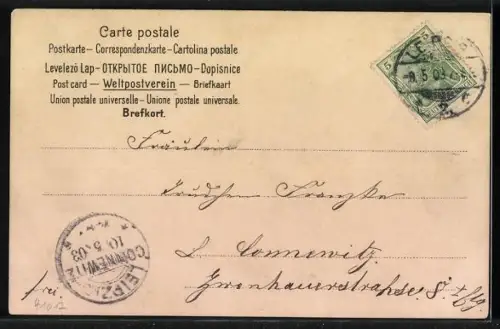 Carte postale
Postkarte — Correspondenzkarte — Cartolina postale
Levelező Lap — ОТКРЫТОЕ ПИСЬМО — Dopisnice
Post card — Weltpostverein — Briefkaart
Union postale universelle — Unione postale universale.
Brefkort.
5
LEIPZIG
5.03
2
Fräulein
Trudchen Franzke
L. Connewitz
8
LEIPZIG
CONNEWITZ
10.5.03
frei.